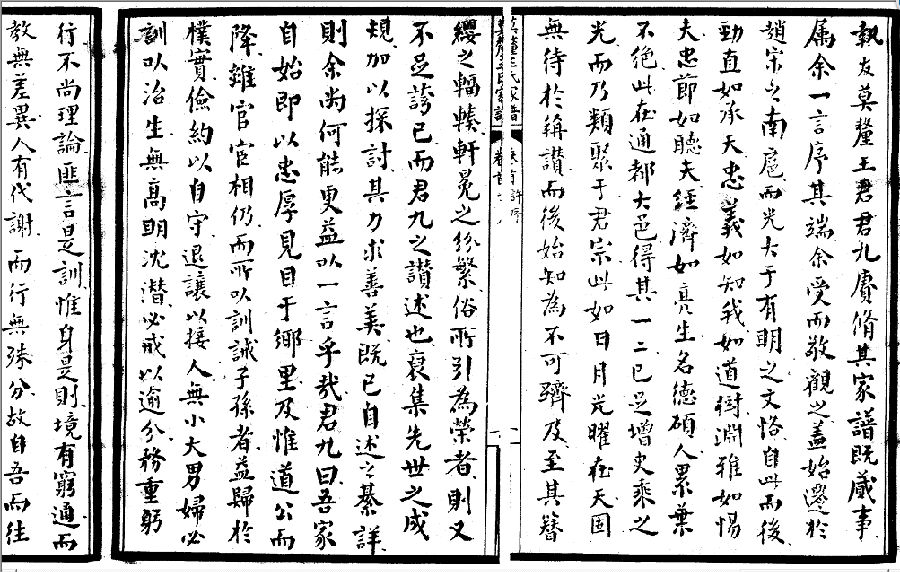 執友莫釐王君君九賡脩其家譜既蕆事
属余一言序其端余受而敬觀之蓋始遷於
趙宋之南扈而光大于有明之文恪自此而後
勁直如承天忠義如知我如道樹淵雅如惕
夫忠節如聽夫經濟如亮生名德碩人累葉
不絕此在通都大邑得其一二已足增史乘之
光而乃類聚于君宗此如日月光曜在天固
無待於稱讚而後始知為不可躋及至其簪
莫釐王氏家譜 卷首 許序
纓之輻輳軒冕之紛繁俗所引為榮者則又
不足誇已而君九之讚述也裒集先世之成
規加以探討其力求善美既已自述之綦詳
則余尚何能更益以一言乎哉君九曰吾家
自始即以忠厚見目于鄉里及惟道公而
降雖官宦相仍而所以訓誡子孫者益歸於
樸實儉約以自守退讓以接人無小大男婦必
訓以治生無高明沈潛必戒以逾分務重躬
行不尚理論匪言是訓惟身是則境有窮通而
教無差異人有代謝而行無殊分故自吾而往